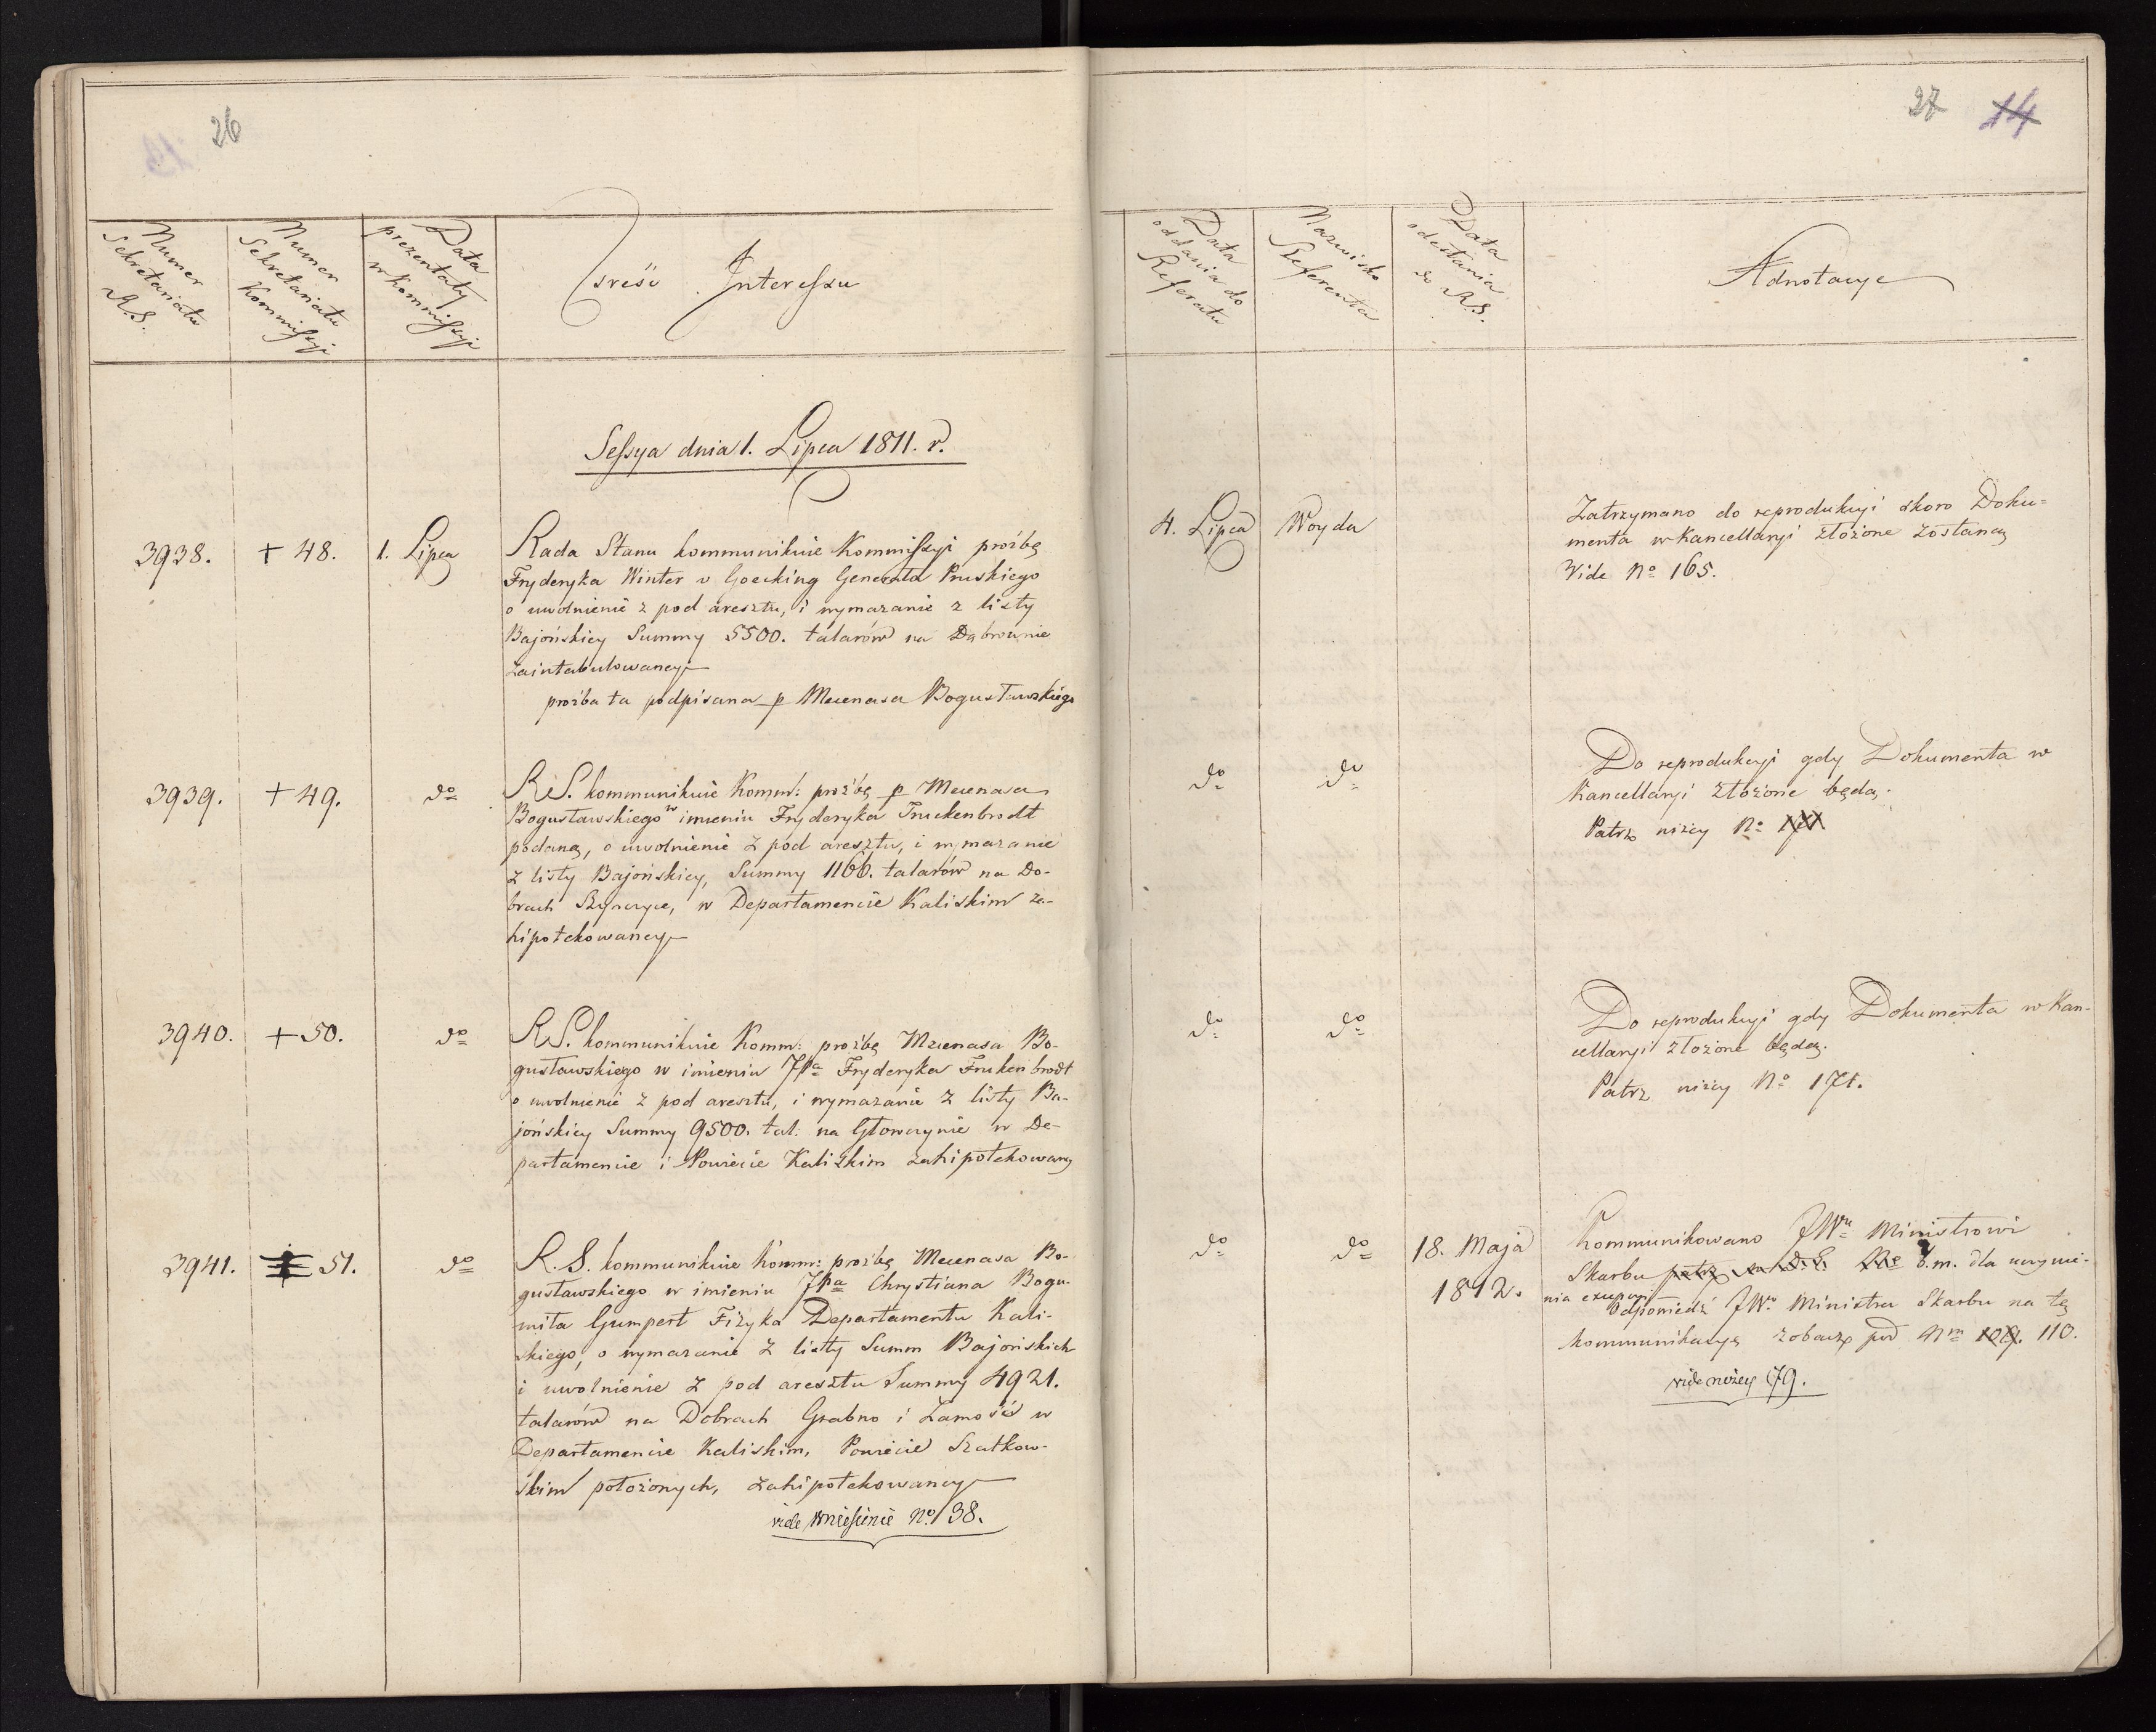 26
Numer
Sekretariatu
R.S.
Numer
Sekretariatu
Kommissyi
Data
prezentaty
w Kommissyi
Treść Interessu
Sessya dnia 1. Lipca 1811. r.
3938.
+ 48.
1. Lipca
Rada Stanu kommunikuie Kommissyi prośbę
Fryderyka Winter v Goecking Generała Pruskiego
o uwolnienie z pod aresztu, i wymazanie z listy
Bajońskiey Summy 5500. talarów na Dąbrownie
zaintabulowaney
prośba ta podpisana p Mecenasa Bogusławskiego
3939.
+ 49.
do
R.S. kommunikuie Komm: prośbę p Mecenasa
Bogusławskiego w imieniu Fryderyka Truckenbrodt
podaną, o uwolnienie z pod aresztu, i wymazanie
z listy Bajońskiey, Summy 1166. talarów na Do-
brach w Departamencie Kaliskim za-
hipotekowaney
3940.
+ 50.
do
R.S. kommunikuie Komm: prośbę Mecenasa Bo-
gusławskiego w imieniu JPa Fryderyka Trukenbrodt
o uwolnienie z pod aresztu, i wymazanie z listy Ba-
jońskiey Summy 9500. tal: na Głowczynie w De-
partamencie i Powiecie Kaliskim zahipotekowany
3941.
51.
do
R.S. kommunikuie Komm: prośbę Mecenasa Bo-
gusławskiego w imieniu JPa Chrystiana Bogu-
miła Gumpert Fizyka Departamentu Kali-
skiego, o wymazanie z listy Summ Bajońskich
i uwolnienie z pod aresztu Summy 4921.
talarów na Dobrach Grabno i Zamość w
Departamencie Kaliskim, Powiecie Szatkow-
skim położonych, zahipotekowaney
vide wniesienie No 38.
27 14
Data
oddania do
Referatu
Nazwisko
Referenta
Data
odesłania
do R.S.
Adnotacye
4. Lipca
Woyda
Zatrzymano do reprodukcyi skoro Doku=
menta w Kancellaryi złożone zostaną
Vide No 165.
do
do
Do reprodukcyi gdy Dokumenta w
Kancellaryi złożone będą.
Patrz niżey No
do
do
Do reprodukcyi gdy Dokumenta w Kan-
cellaryi złożone będą.
Patrz niżey No 171.
do
do
18. Maja
1812.
Kommunikowano JWu Ministrowi
Skarbu b.m. dla uczynie-
nia
Odpowiedź JWo Ministra Skarbu na tę
kommunikacyę zobacz pod Nm 110.
vide niżey 179.